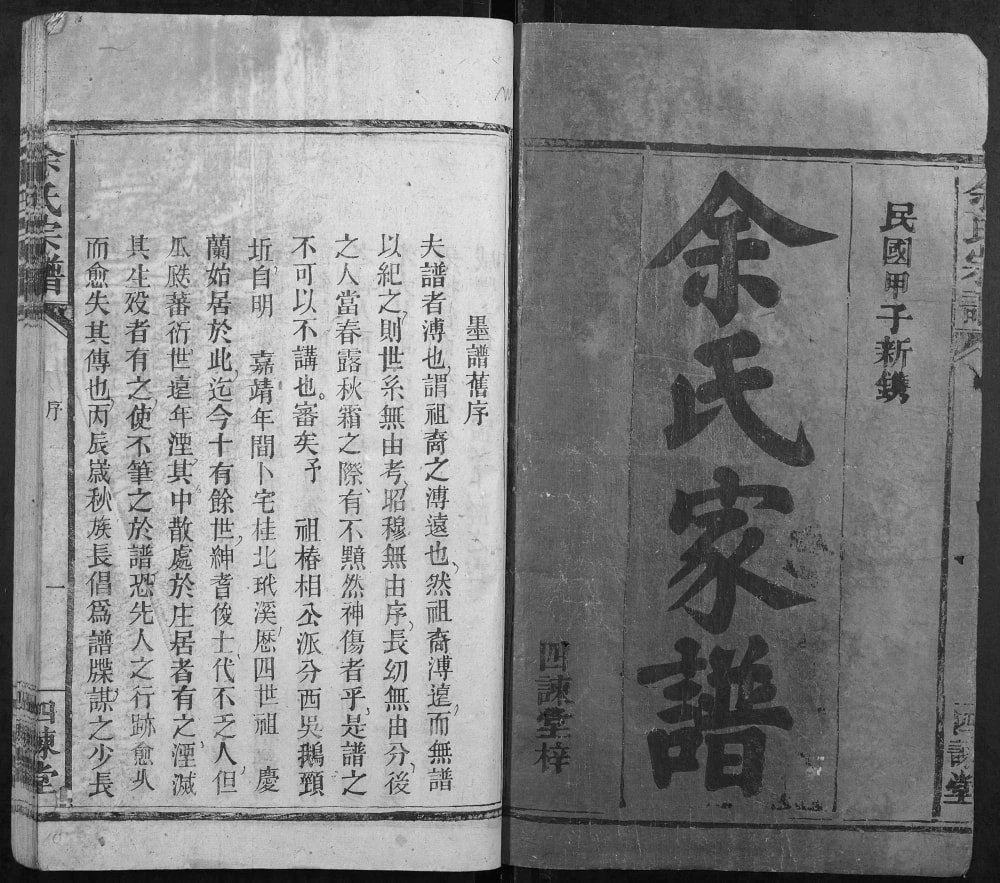 民國甲子新鐫
余氏家譜
四諫堂梓
余氏宗譜
四諫堂
墨譜舊序
夫譜者溥也謂祖裔之溥遠也然祖裔溥遠而無譜
以紀之則世系無由考昭穆無由序長幼無由分後
之人當春露秋霜之際有不黯然神傷者乎是譜之
不可以不講也審矣予 祖椿相公派分西吳鵝頸
圻自明 嘉靖年間卜宅桂北玳溪歷四世祖 慶
蘭始居於此迄今十有餘世紳耆俊士代不乏人但
瓜瓞蕃衍世遠年湮其中散處於庄居者有之湮滅
其生殁者有之使不筆之於譜恐先人之行跡愈乆
而愈失其傳也丙辰嵗秋族長倡爲譜牒謀之少長
余氏宗譜
序
一
四諫堂